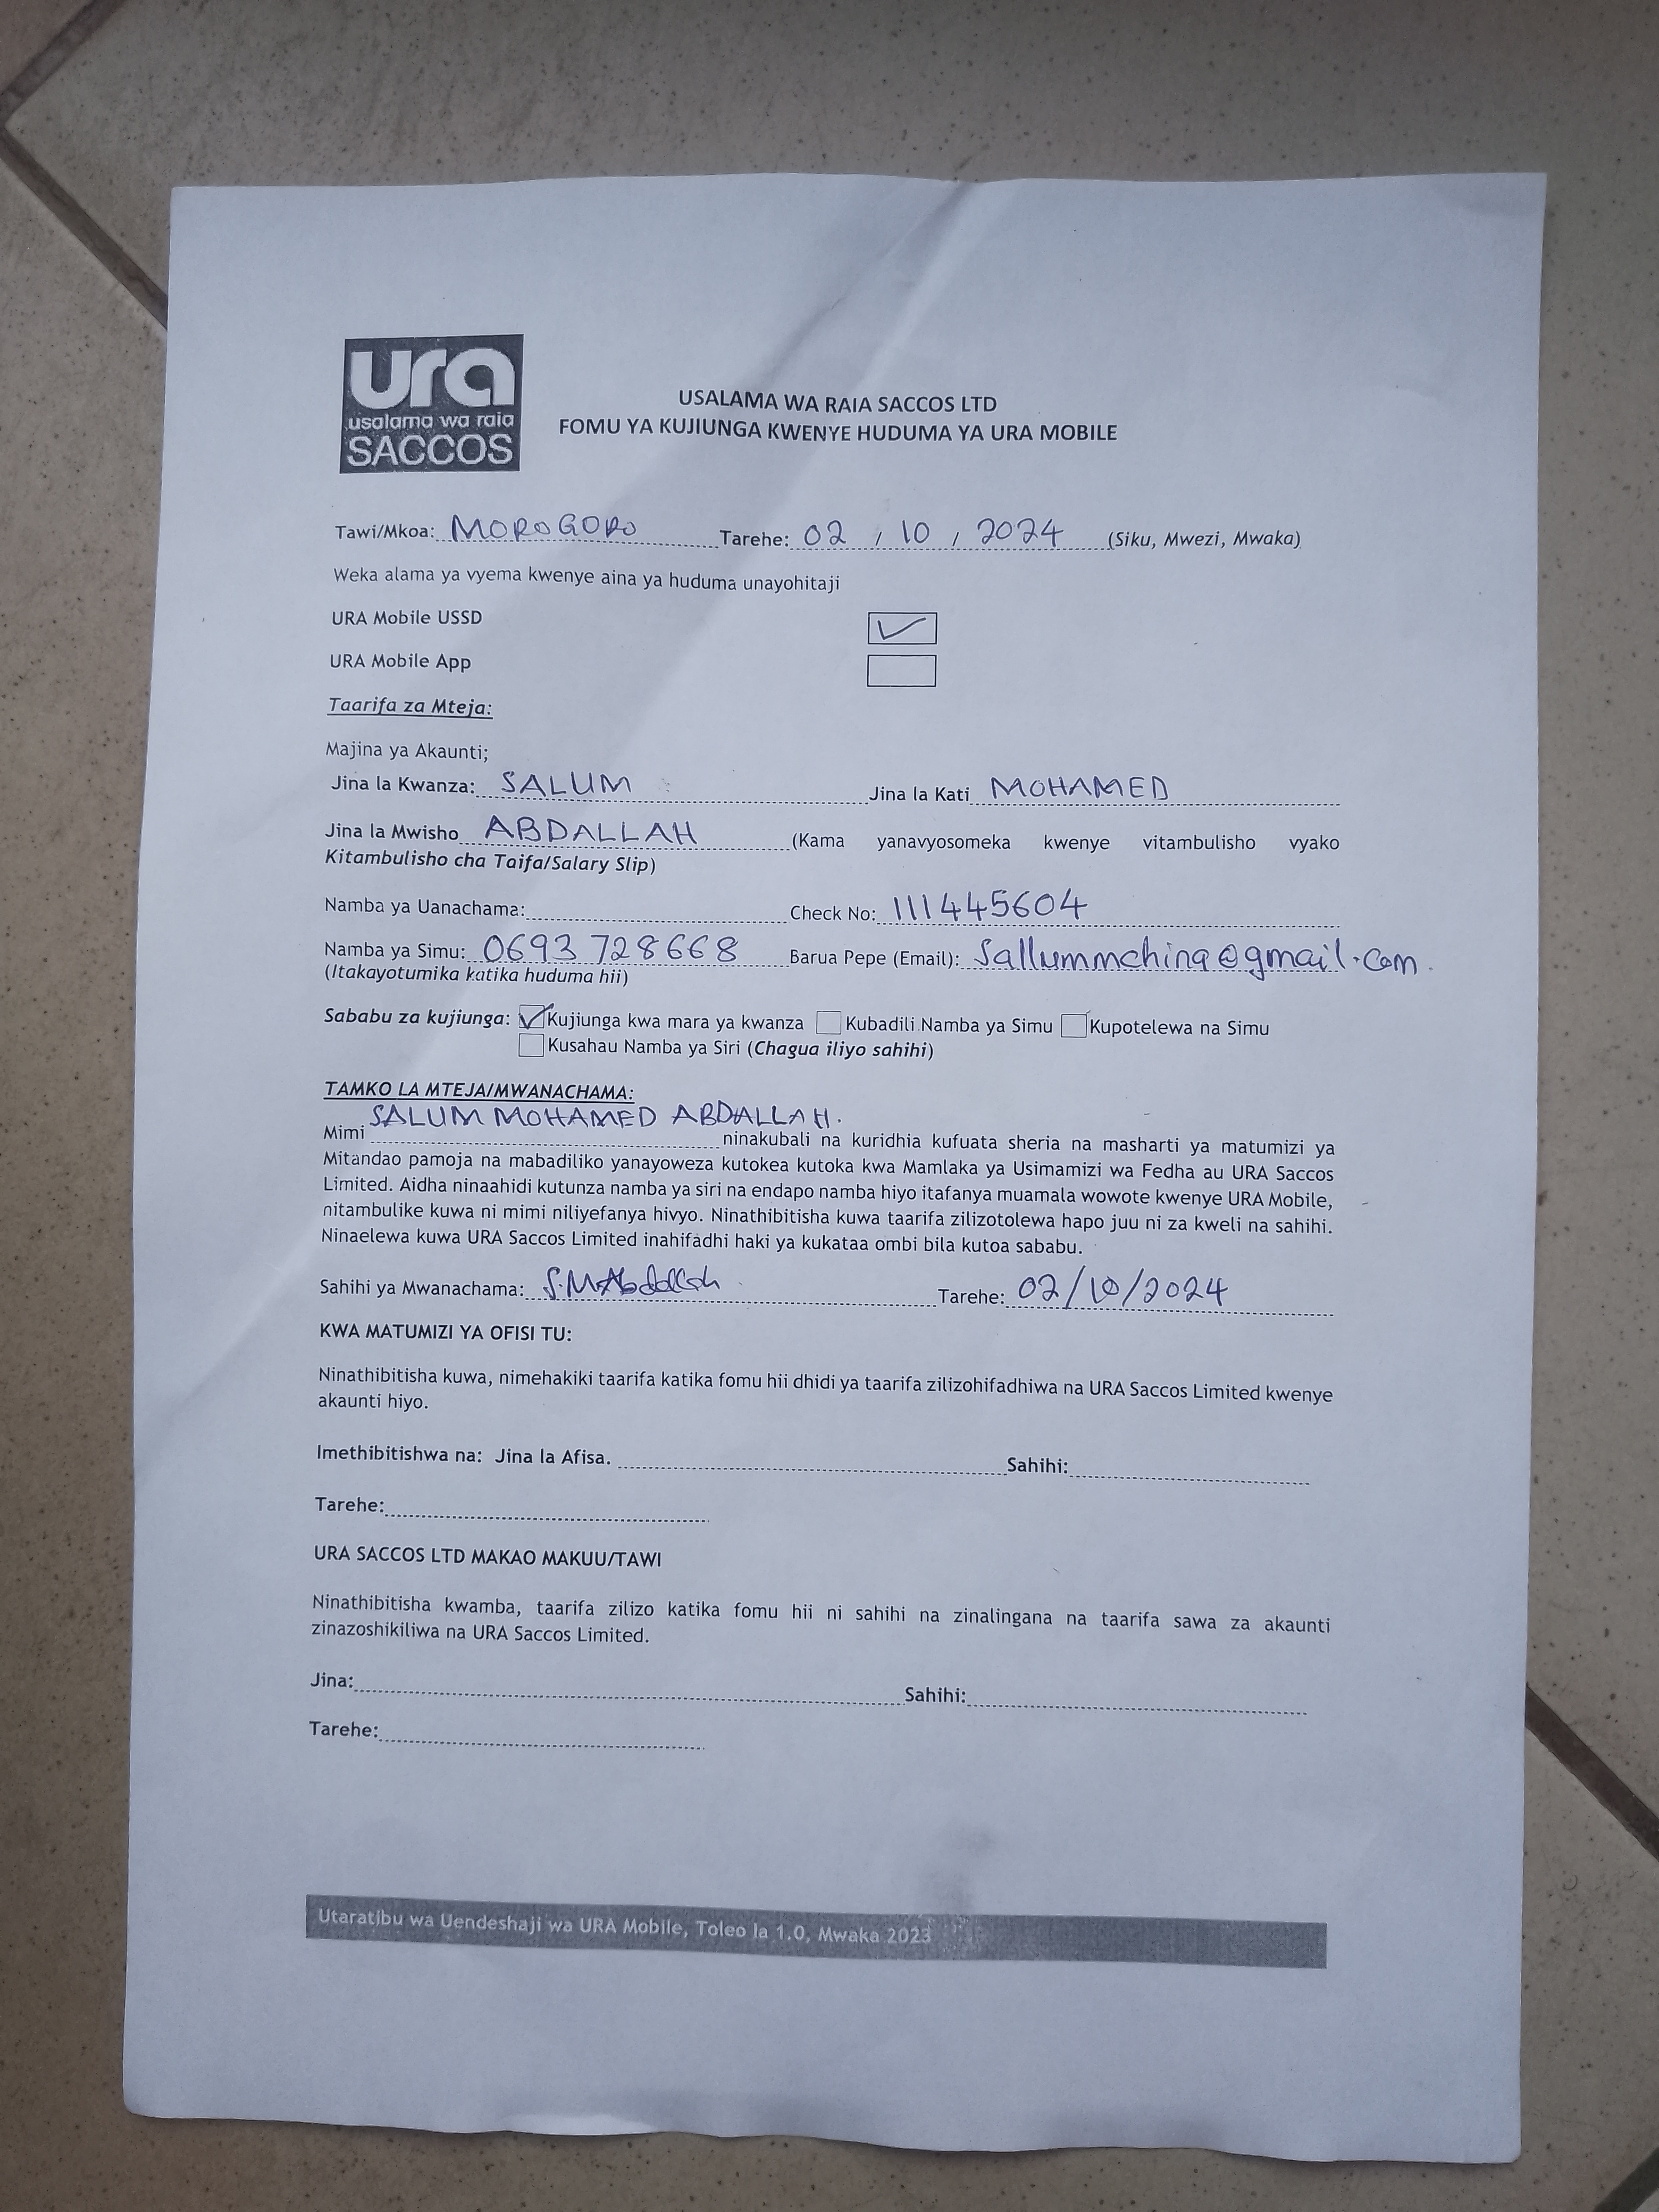 ura
usalama wa raia
SACCOS
USALAMA WA RAIA SACCOS LTD
FOMU YA KUJIUNGA KWENYE HUDUMA YA URA MOBILE
Tawi/Mkoa: MOROGORO Tarehe: 02 / 10 / 2024 (Siku, Mwezi, Mwaka)
Weka alama ya vyema kwenye aina ya huduma unayohitaji
URA Mobile USSD ✓
URA Mobile App
Taarifa za Mteja:
Majina ya Akaunti;
Jina la Kwanza: SALUM Jina la Kati MOHAMED
Jina la Mwisho ABDALLAH (Kama yanavyosomeka kwenye vitambulisho vyako
Kitambulisho cha Taifa/Salary Slip)
Namba ya Uanachama: Check No: 111445604
Namba ya Simu: 0693 728668 Barua Pepe (Email): Sallummchina@gmail.com.
(Itakayotumika katika huduma hii)
Sababu za kujiunga: ✓ Kujiunga kwa mara ya kwanza Kubadili Namba ya Simu Kupotelewa na Simu
Kusahau Namba ya Siri (Chagua iliyo sahihi)
TAMKO LA MTEJA/MWANACHAMA:
SALUM MOHAMED ABDALLAH.
Mimi ninakubali na kuridhia kufuata sheria na masharti ya matumizi ya
Mitandao pamoja na mabadiliko yanayoweza kutokea kutoka kwa Mamlaka ya Usimamizi wa Fedha au URA Saccos
Limited. Aidha ninaahidi kutunza namba ya siri na endapo namba hiyo itafanya muamala wowote kwenye URA Mobile,
nitambulike kuwa ni mimi niliyefanya hivyo. Ninathibitisha kuwa taarifa zilizotolewa hapo juu ni za kweli na sahihi.
Ninaelewa kuwa URA Saccos Limited inahifadhi haki ya kukataa ombi bila kutoa sababu.
Sahihi ya Mwanachama: S.MAbdallah Tarehe: 02/10/2024
KWA MATUMIZI YA OFISI TU:
Ninathibitisha kuwa, nimehakiki taarifa katika fomu hii dhidi ya taarifa zilizohifadhiwa na URA Saccos Limited kwenye
akaunti hiyo.
Imethibitishwa na: Jina la Afisa. Sahihi:
Tarehe:
URA SACCOS LTD MAKAO MAKUU/TAWI
Ninathibitisha kwamba, taarifa zilizo katika fomu hii ni sahihi na zinalingana na taarifa sawa za akaunti
zinazoshikiliwa na URA Saccos Limited.
Jina: Sahihi:
Tarehe:
Utaratibu wa Uendeshaji wa URA Mobile, Toleo la 1.0, Mwaka 2023